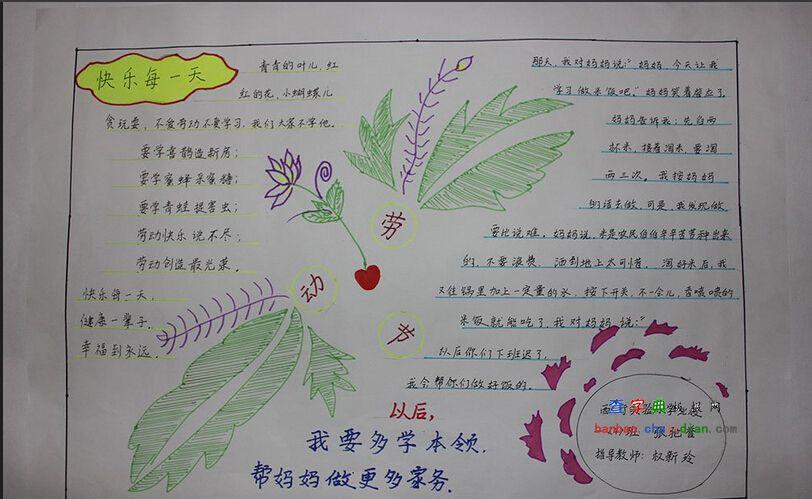 快乐每一天
青青的叶儿，红
红的花，小蝴蝶儿
贪玩耍，不爱劳动不要学习，我们大家不学他。
要学喜鹊造新房；
要学蜜蜂采蜜糖；
要学青蛙捉害虫；
劳动快乐说不尽；
劳动创造最光荣。
快乐每一天，
健康一辈子，
幸福到永远。
劳
动
节
那天，我对妈妈说：“妈妈，今天让我
学习做米饭吧。”妈妈笑着答应了。
妈妈告诉我：先舀两
杯米，接着淘米，要淘
两三次。我按妈妈
的话去做，可是，我发现做
要比说难。妈妈说，米是农民伯伯辛辛苦苦种出来
的，不要浪费，洒到地上太可惜。淘好米后，我
又往锅里加上一定量的水，按下开关，不一会儿，香喷喷的
米饭就能吃了。我对妈妈说：“
以后你们下班迟了，
我会帮你们做好饭的。
以后，
我要多学本领，
帮妈妈做更多家务。
查字典 板报网
banbao.chazidian.com
指导教师：权新玲